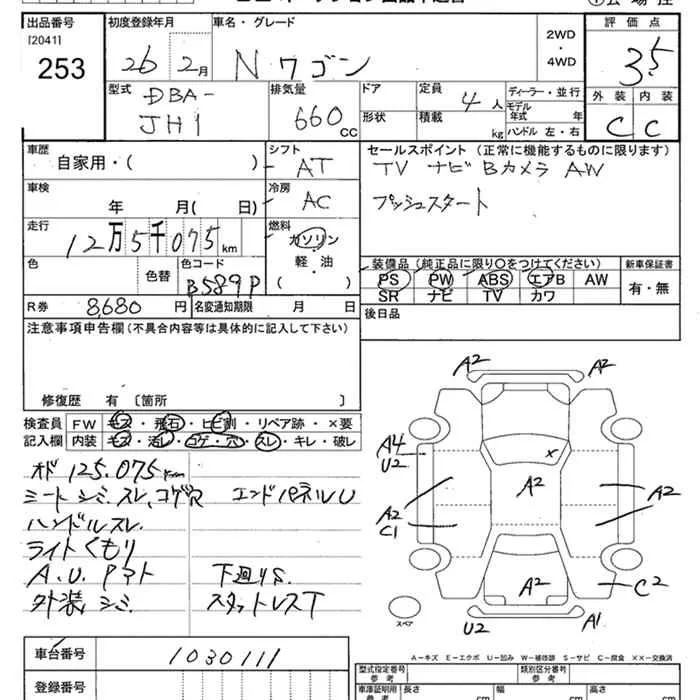 出品番号 初度登録年月 車名・グレード 評価点
[2041]
253 26 2月 Nワゴン 2WD・4WD 3.5
型式 排気量 ドア 定員 ディーラー・並行 外装 内装
DBA- 660cc 4人 モデル年式 年
JH1 形状 積載 kg ハンドル 左・右 C C
車歴 シフト セールスポイント (正常に機能するものに限ります)
自家用・( ) AT TV ナビ Bカメラ AW
車検 冷房 プッシュスタート
年 月( 日) AC
走行 燃料
12万5千075km ガソリン
軽・油
( )
色 色替 色コード 装備品(純正品に限り○をつけてください) 新車保証書
B589P PS PW ABS エアB AW 有・無
SR ナビ TV カワ
R券 8,680円 名変通知期限 月 日 後日品
注意事項申告欄(不具合内容等は具体的に記入して下さい)
修復歴 有〔箇所 〕
検査員 FW キズ・飛石・ヒビ割・リペア跡・×要
記入欄 内装 キズ・汚レ・コゲ・穴・スレ・キレ・破レ
オド 125.075km
シートシミ、スレ、コゲR エンドパネルU
ハンドルスレ.
ライトくもり
A.U.Pマト 下廻りS.
外装シミ スタットレスT
A2 A2
A4
U2
×
A2 A2
A2
C1
A2 C2
U2 A1
スペア
A-キズ E-エクボ U-凹み W-補修跡 S-サビ C-腐食 ××-交換済
車台番号 1030111
登録番号
型式指定番号 参考 類別区分番号 参考
車庫証明用 参考 長さ cm 幅 cm 高さ cm